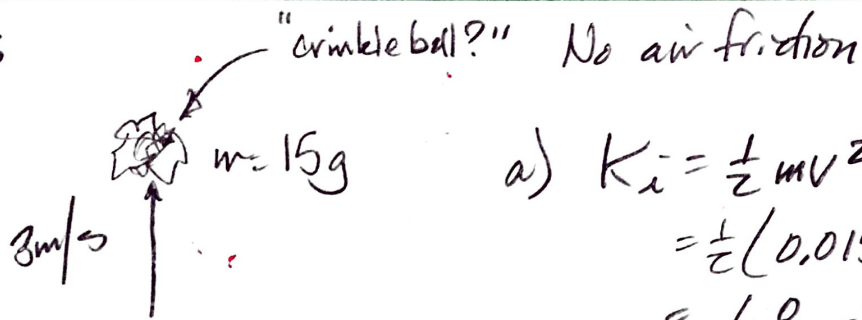 "crinkle ball?" No air friction
m = 15g
a) Ki = 1/2 mv²
3m/s
= 1/2 (0.01